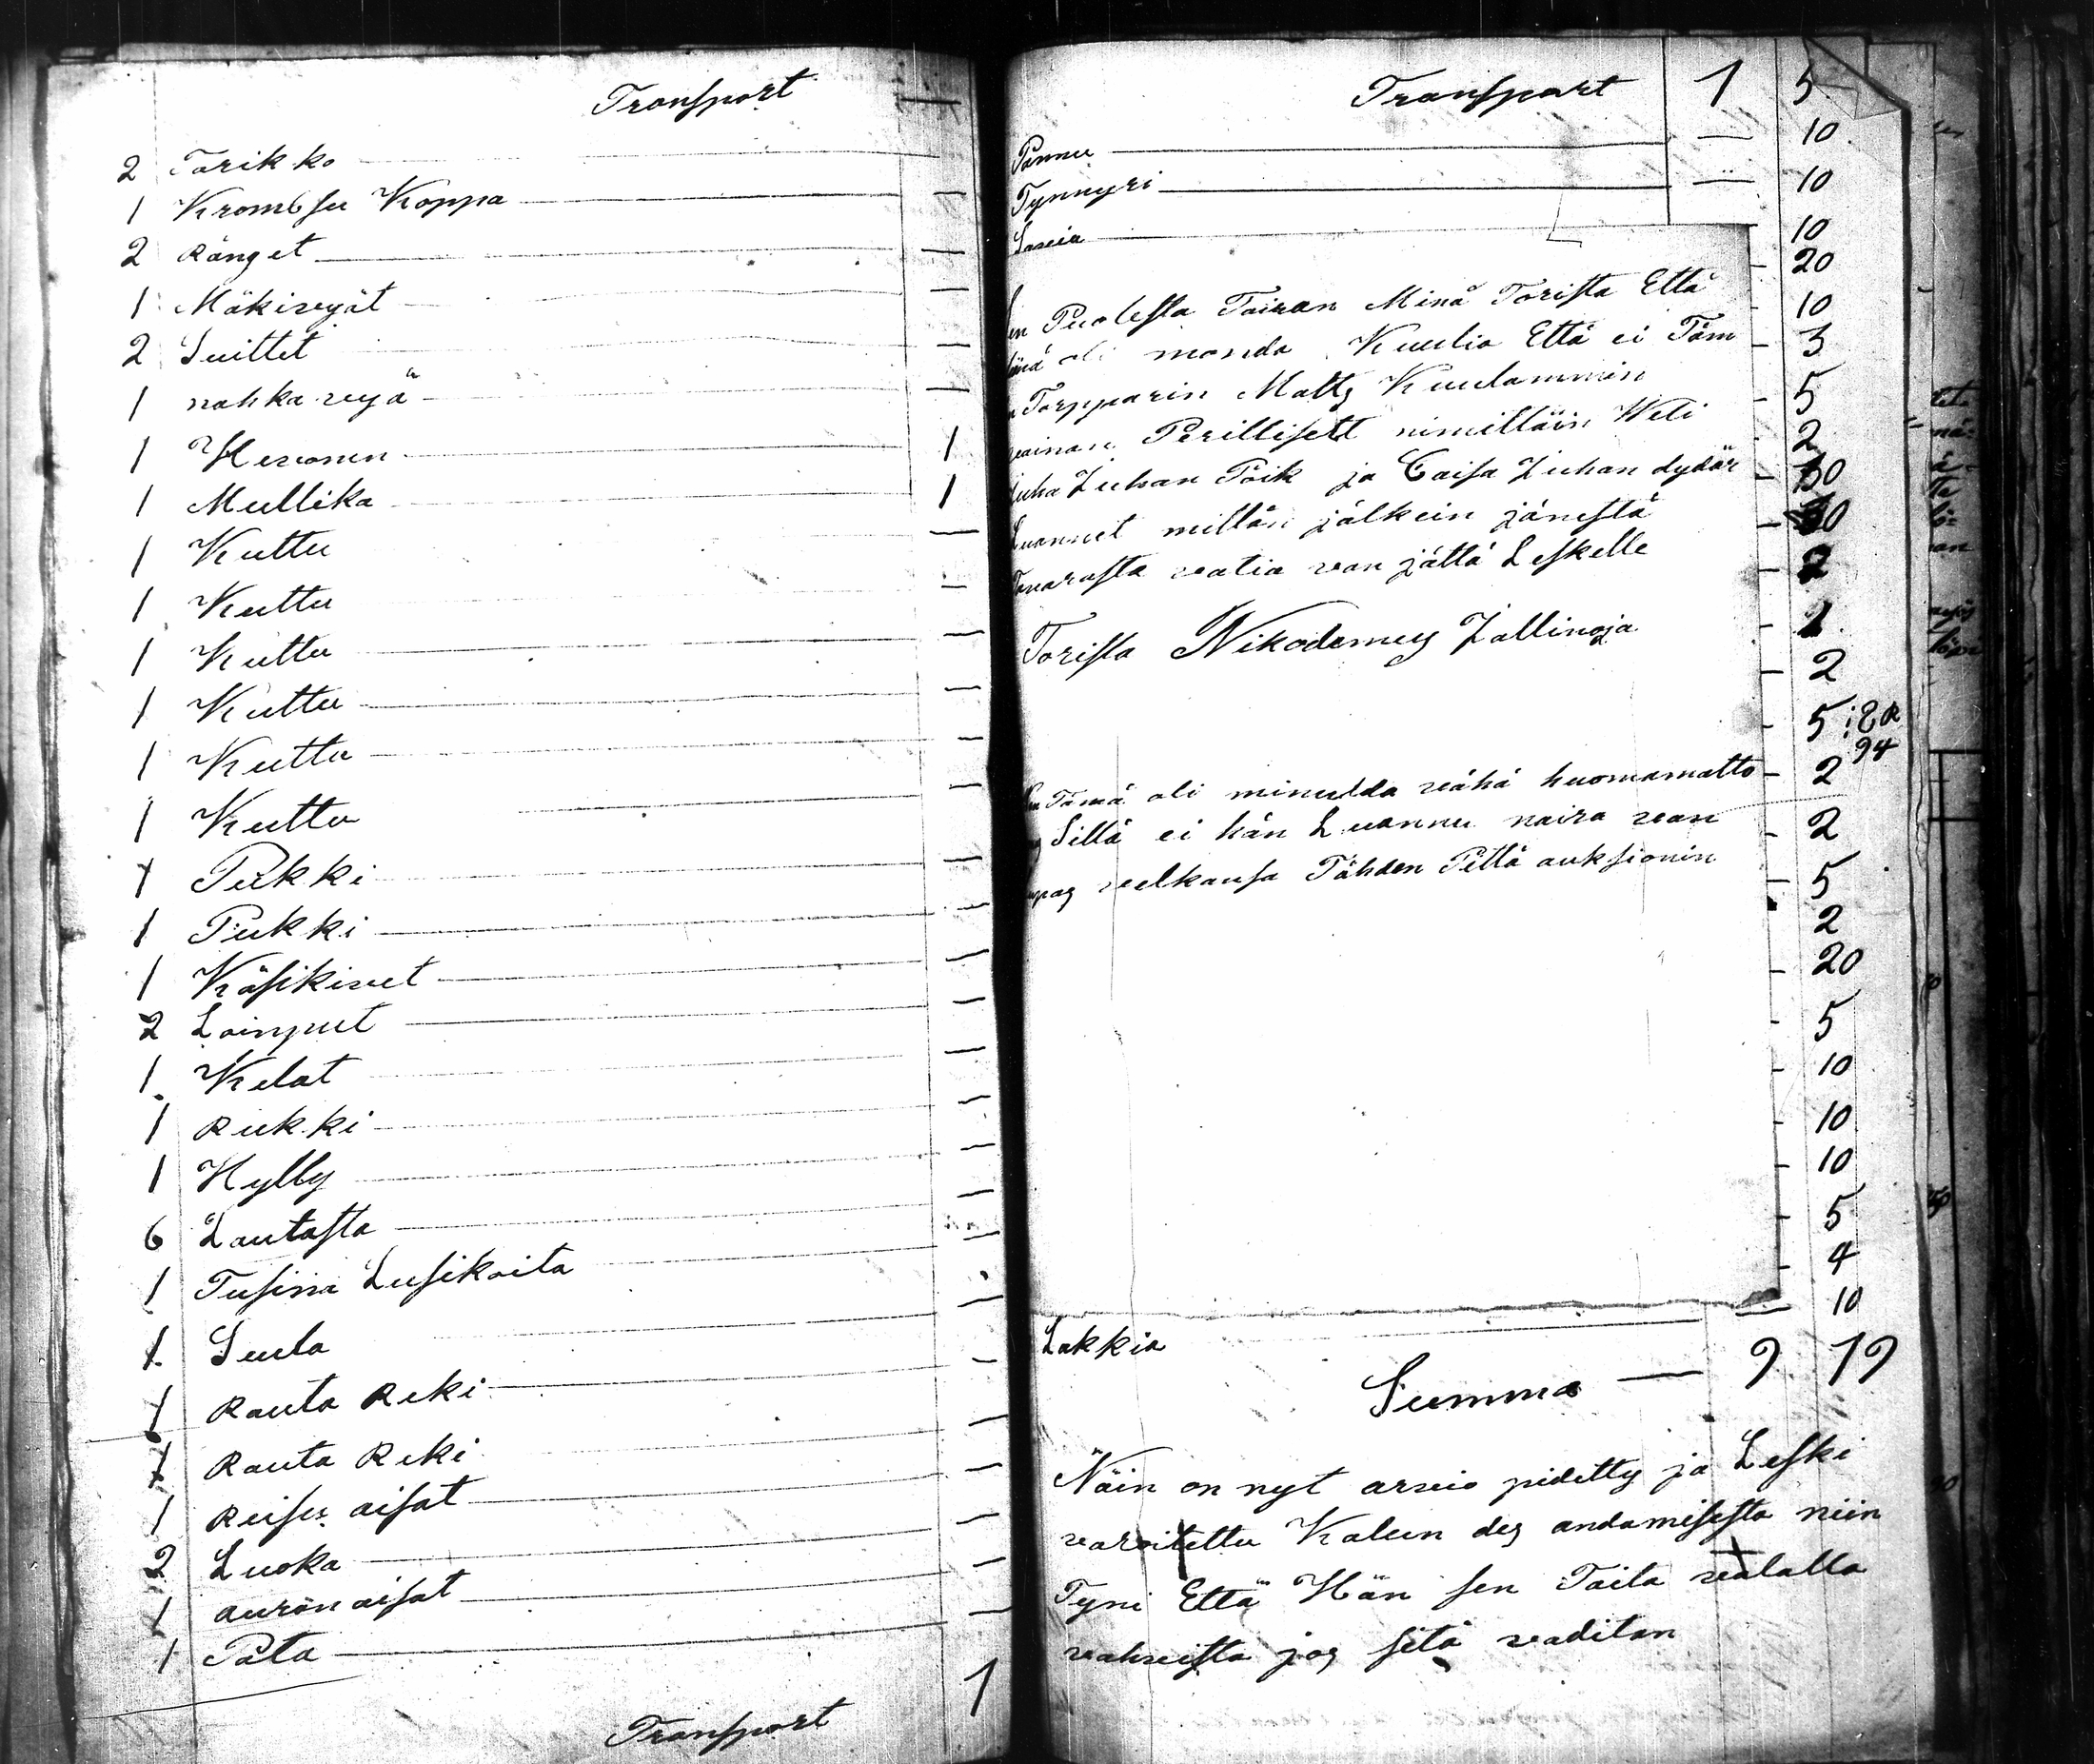 Transport
2 Tarikko —
1 Krombsu Koppa —
2 Ränget —
1 Mäkiveyät —
2 Suittet —
1 nahka veyä —
1 Hevonen 1
1 Mullika 1
1 Kuttu —
1 Kuttu —
1 Kuttu —
1 Kuttu —
1 Kuttu —
1 Kuttu —
1 Pukki —
1 Pukki —
1 Käsikivet —
2 Loimput —
1 Kelat —
1 Rukki —
1 Hylly —
6 Lautasta —
1 Tusina Lusikoita —
1 Suula —
1 Rauta Reki —
1 Rauta Reki —
1 Reisu aisat —
2 Luoka —
1 auron aisat —
1 Pata —
Transport 1
Transport 1 5
Pannu — 10
Tynnyri — 10
10
20
Puolesta Taivan Minä Torista Että 10
oli monda Kuulia Että ei Täm 3
Torpparin Matts Kuulammin 5
Perilliset nimittäin Weli 2
Juha Juhan Poik ja Caisa Juhan dydär
Luonnet millän jälkein jänestä
Tavarasta vatia van jättä Leskelle 2
Torista Nikodemus Jallinoja
2
5
94
Tämä oli minulda vähä huomamatto 2
Sillä ei hän Luannu naira van 2
velkansa Tähden Pittä auksionin 5
2
20
5
10
10
10
5
4
10
Lakkia
Summa — 9 79
Näin on nyt arvio pidetty ja Leski
varoitettu Kalun des andamisesta niin
Tyni Että Hän sen Taita valalla
vahvista jos sitä vaditan